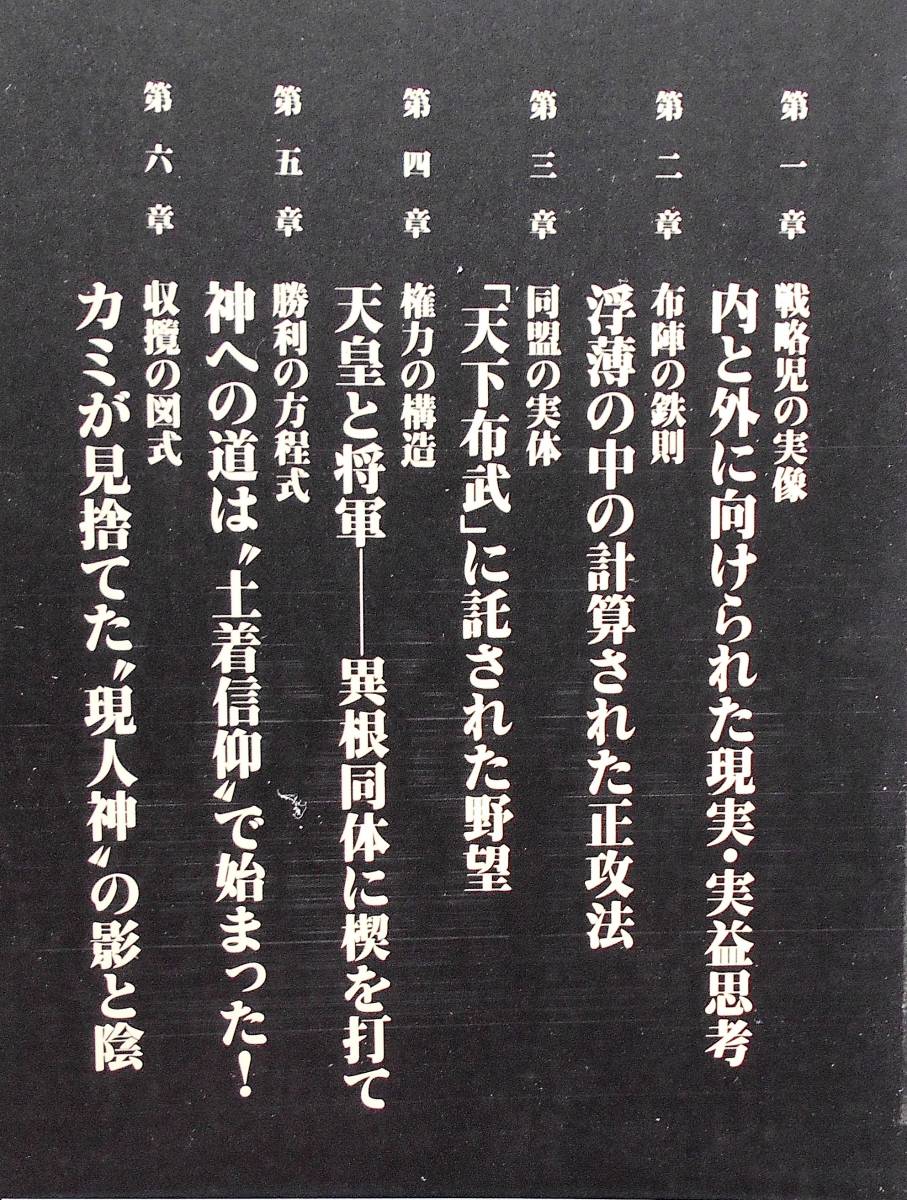 第一章
戦略児の実像
内と外に向けられた現実・実益思考
第二章
布陣の鉄則
浮薄の中の計算された正攻法
第三章
同盟の実体
「天下布武」に託された野望
第四章
権力の構造
天皇と将軍――異根同体に楔を打て
第五章
勝利の方程式
神への道は〝土着信仰〟で始まった！
第六章
収攬の図式
カミが見捨てた〝現人神〟の影と陰